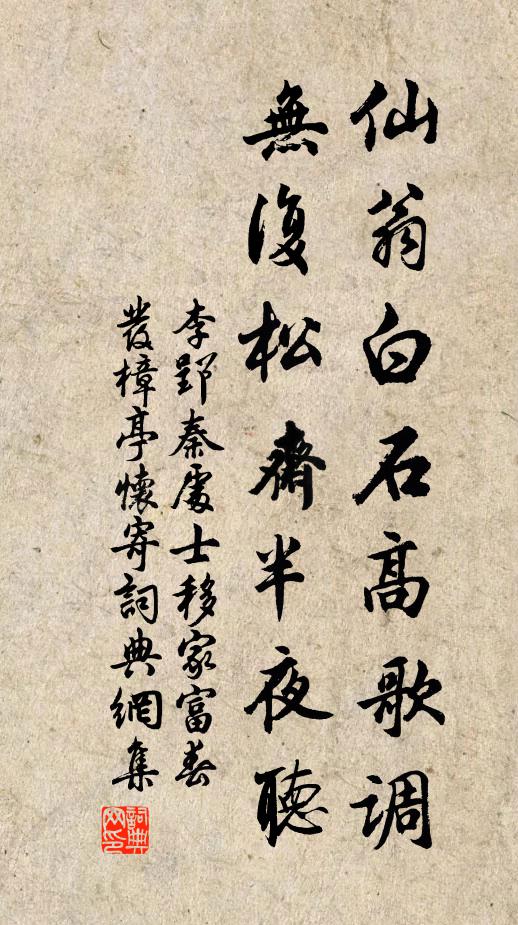 仙翁白石高歌调
無復松齋半夜聽
李郢秦處士移家富春
發樟亭懷寄詞典網集
詞典網印